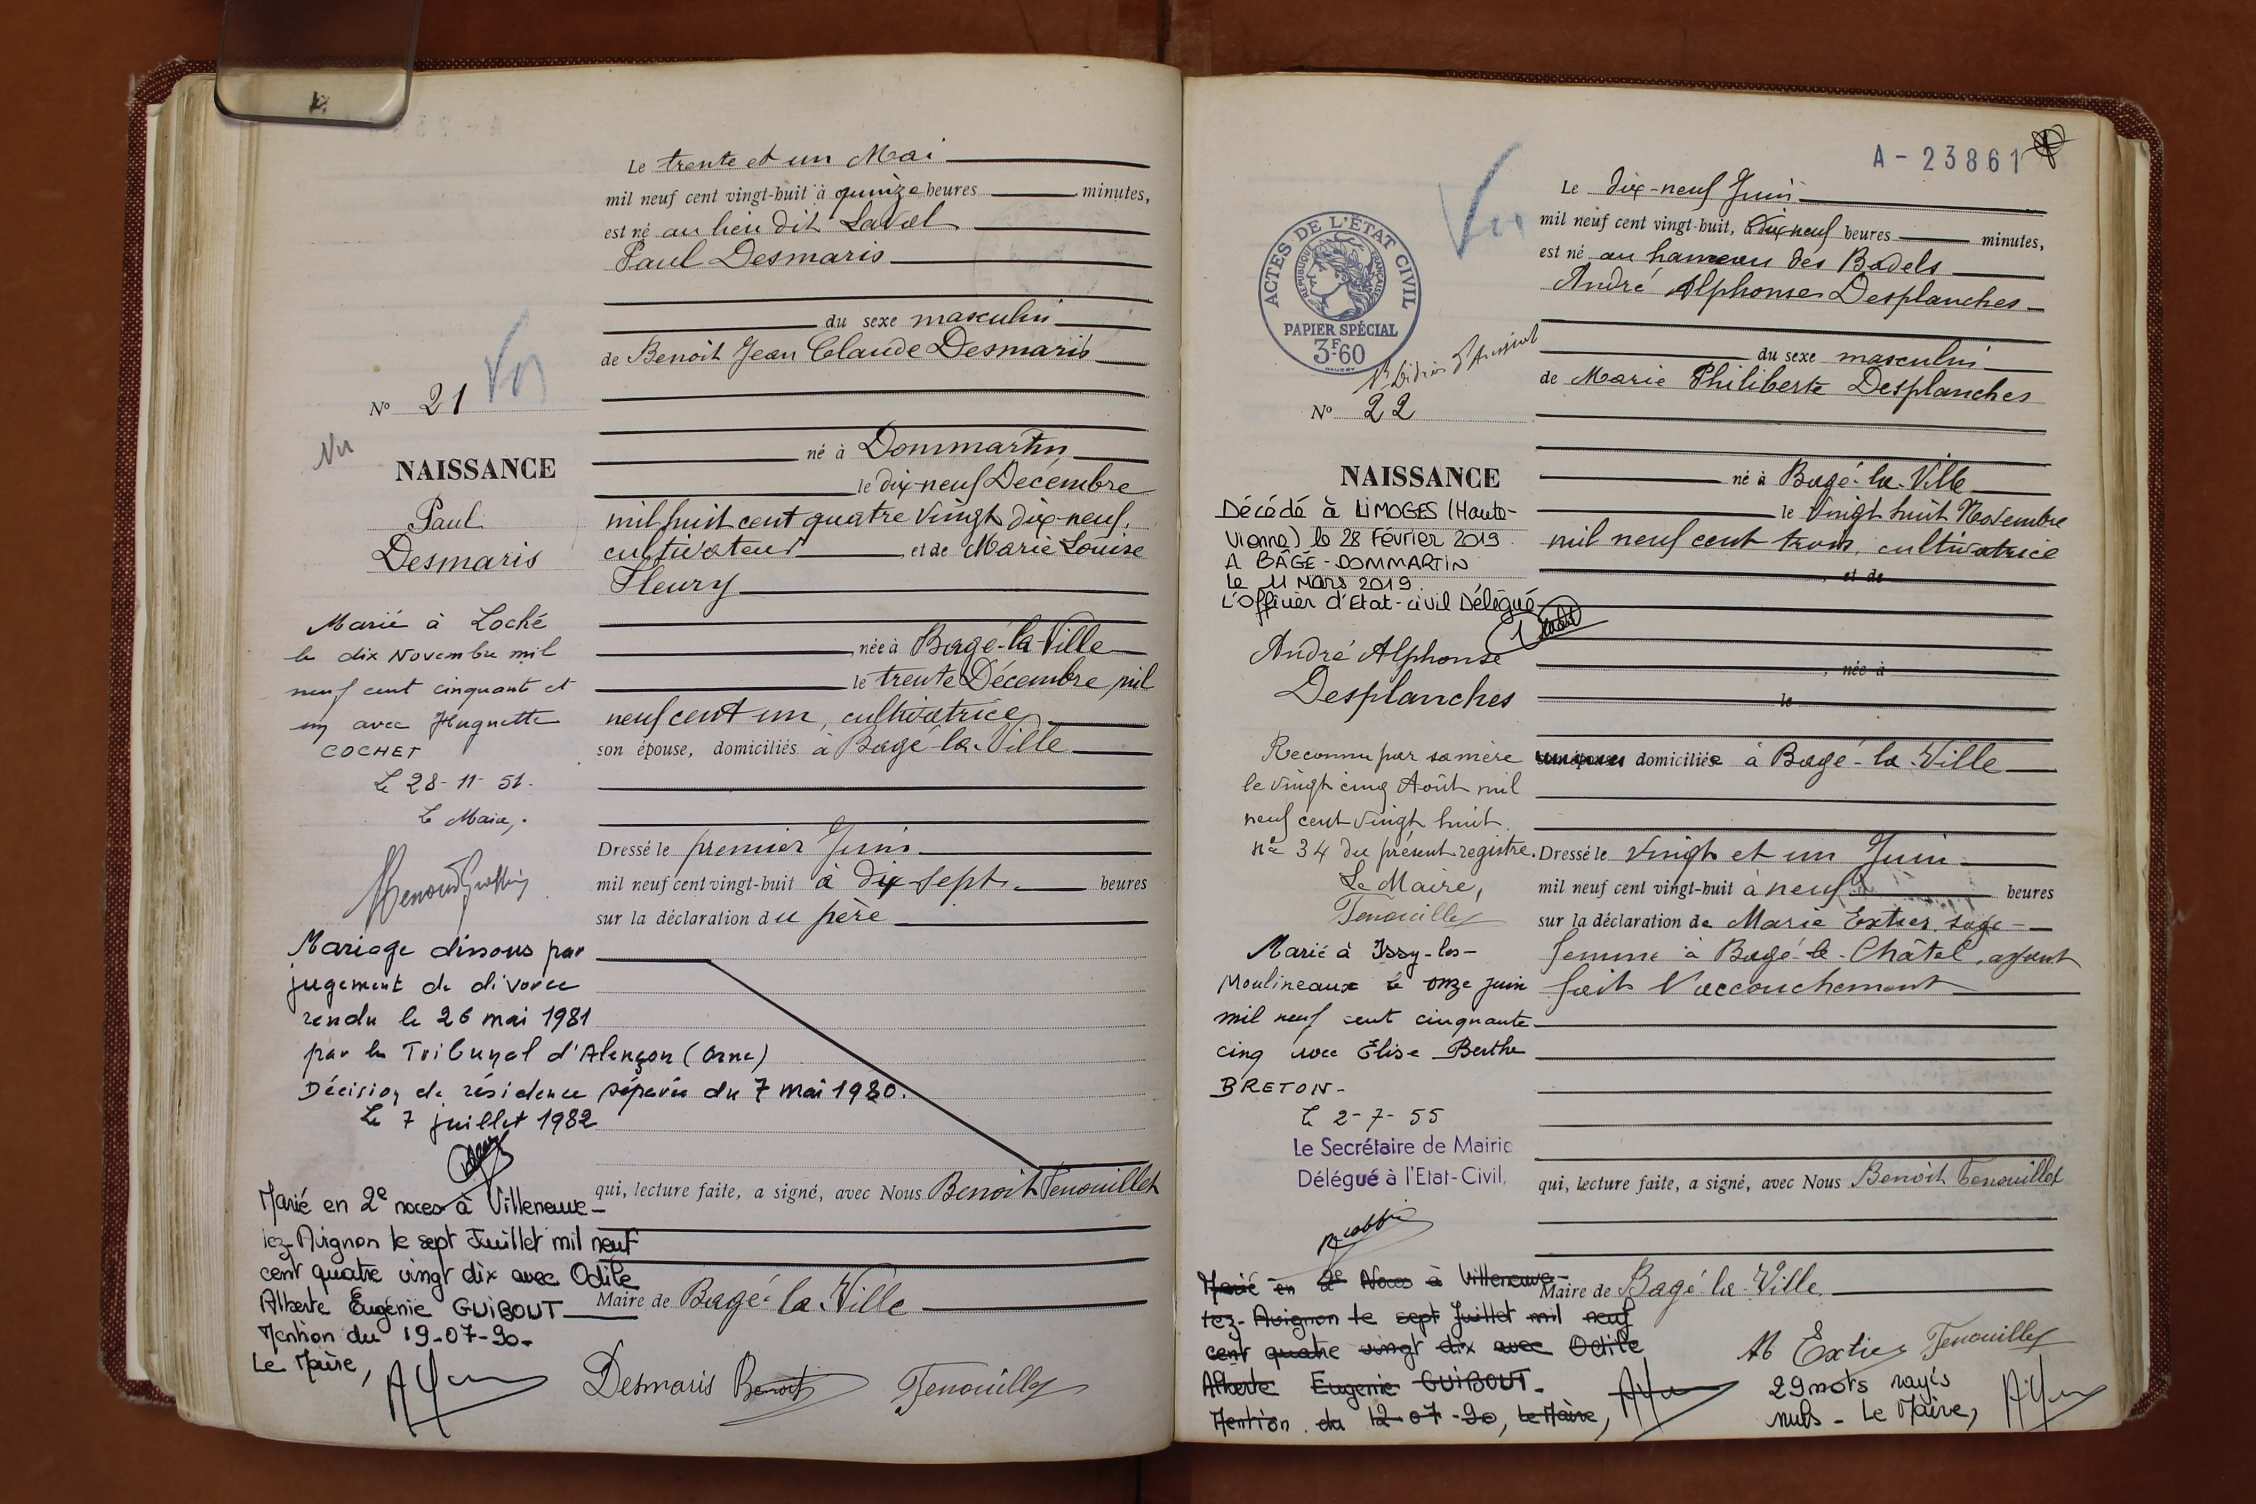 Le trente et un Mai
mil neuf cent vingt-huit à quinze heures minutes,
est né au lieu dit Laval
Paul Desmaris
du sexe masculin
de Benoit Jean Claude Desmaris
né à Dommartin
le dix-neuf Décembre
mil huit cent quatre vingt dix-neuf,
cultivateur et de Marie Louise
Fleury
née à Bagé-la-Ville
le trente Décembre mil
neuf cent un, cultivatrice
son épouse, domiciliés à Bagé-la-Ville
Dressé le premier Juin
mil neuf cent vingt-huit à dix-sept heures
sur la déclaration du père
qui, lecture faite, a signé, avec Nous Benoit Fenouillet
Maire de Bagé-la-Ville
Desmaris Benoit Fenouillet
Vu
No 21
Vu
NAISSANCE
Paul
Desmaris
Marié à Loché
le dix Novembre mil
neuf cent cinquante et
un avec Huguette
COCHET
Le 28-11-51.
Le Maire,
Mariage dissous par
jugement de divorce
rendu le 26 mai 1981
par le Tribunal d'Alençon (Orne)
Décision de résidence séparée du 7 mai 1980.
Le 7 juillet 1982
Marié en 2e noces à Villeneuve-
lez-Avignon le sept Juillet mil neuf
cent quatre vingt dix avec Odile
Alberte Eugénie GUIBOUT
Mention du 19-07-90-
Le Maire,
A-23861
Le dix-neuf Juin
mil neuf cent vingt-huit, dix neuf heures minutes,
est né au hameau des Badels
André Alphonse Desplanches
du sexe masculin
de Marie Philiberte Desplanches
né à Bagé-la-Ville
le vingt huit Novembre
mil neuf cent trois, cultivatrice
, et de
, née à
le
domiciliée à Bagé-la-Ville
Dressé le vingt et un Juin
mil neuf cent vingt-huit à neuf heures
sur la déclaration de Marie Extier, sage-
femme à Bagé-le-Châtel, ayant
fait l'accouchement
qui, lecture faite, a signé, avec Nous Benoit Fenouillet
Maire de Bagé-la-Ville
Extier Fenouillet
29 mots rayés
nuls - Le Maire,
Vu
ACTES DE L'ÉTAT CIVIL
RÉPUBLIQUE FRANÇAISE
PAPIER SPÉCIAL
3F60
No 22
NAISSANCE
Décédé à LIMOGES (Haute-
Vienne) le 28 Février 2019
A BÂGÉ-DOMMARTIN
Le 11 MARS 2019
L'Officier d'Etat-civil Délégué
André Alphonse
Desplanches
Reconnu par sa mère
le vingt cinq Août mil
neuf cent vingt huit
no 34 du présent registre.
Le Maire,
Fenouillet
Marié à Issy-les-
Moulineaux le onze juin
mil neuf cent cinquante
cinq avec Elise Berthe
BRETON-
Le 2-7-55
Le Secrétaire de Mairie
Délégué à l'Etat-Civil,
Marié en 2e Noces à Villeneuve-
lez-Avignon le sept Juillet mil neuf
cent quatre vingt dix avec Odile
Alberte Eugenie GUIBOUT-
Mention du 12-07-90, Le Maire,